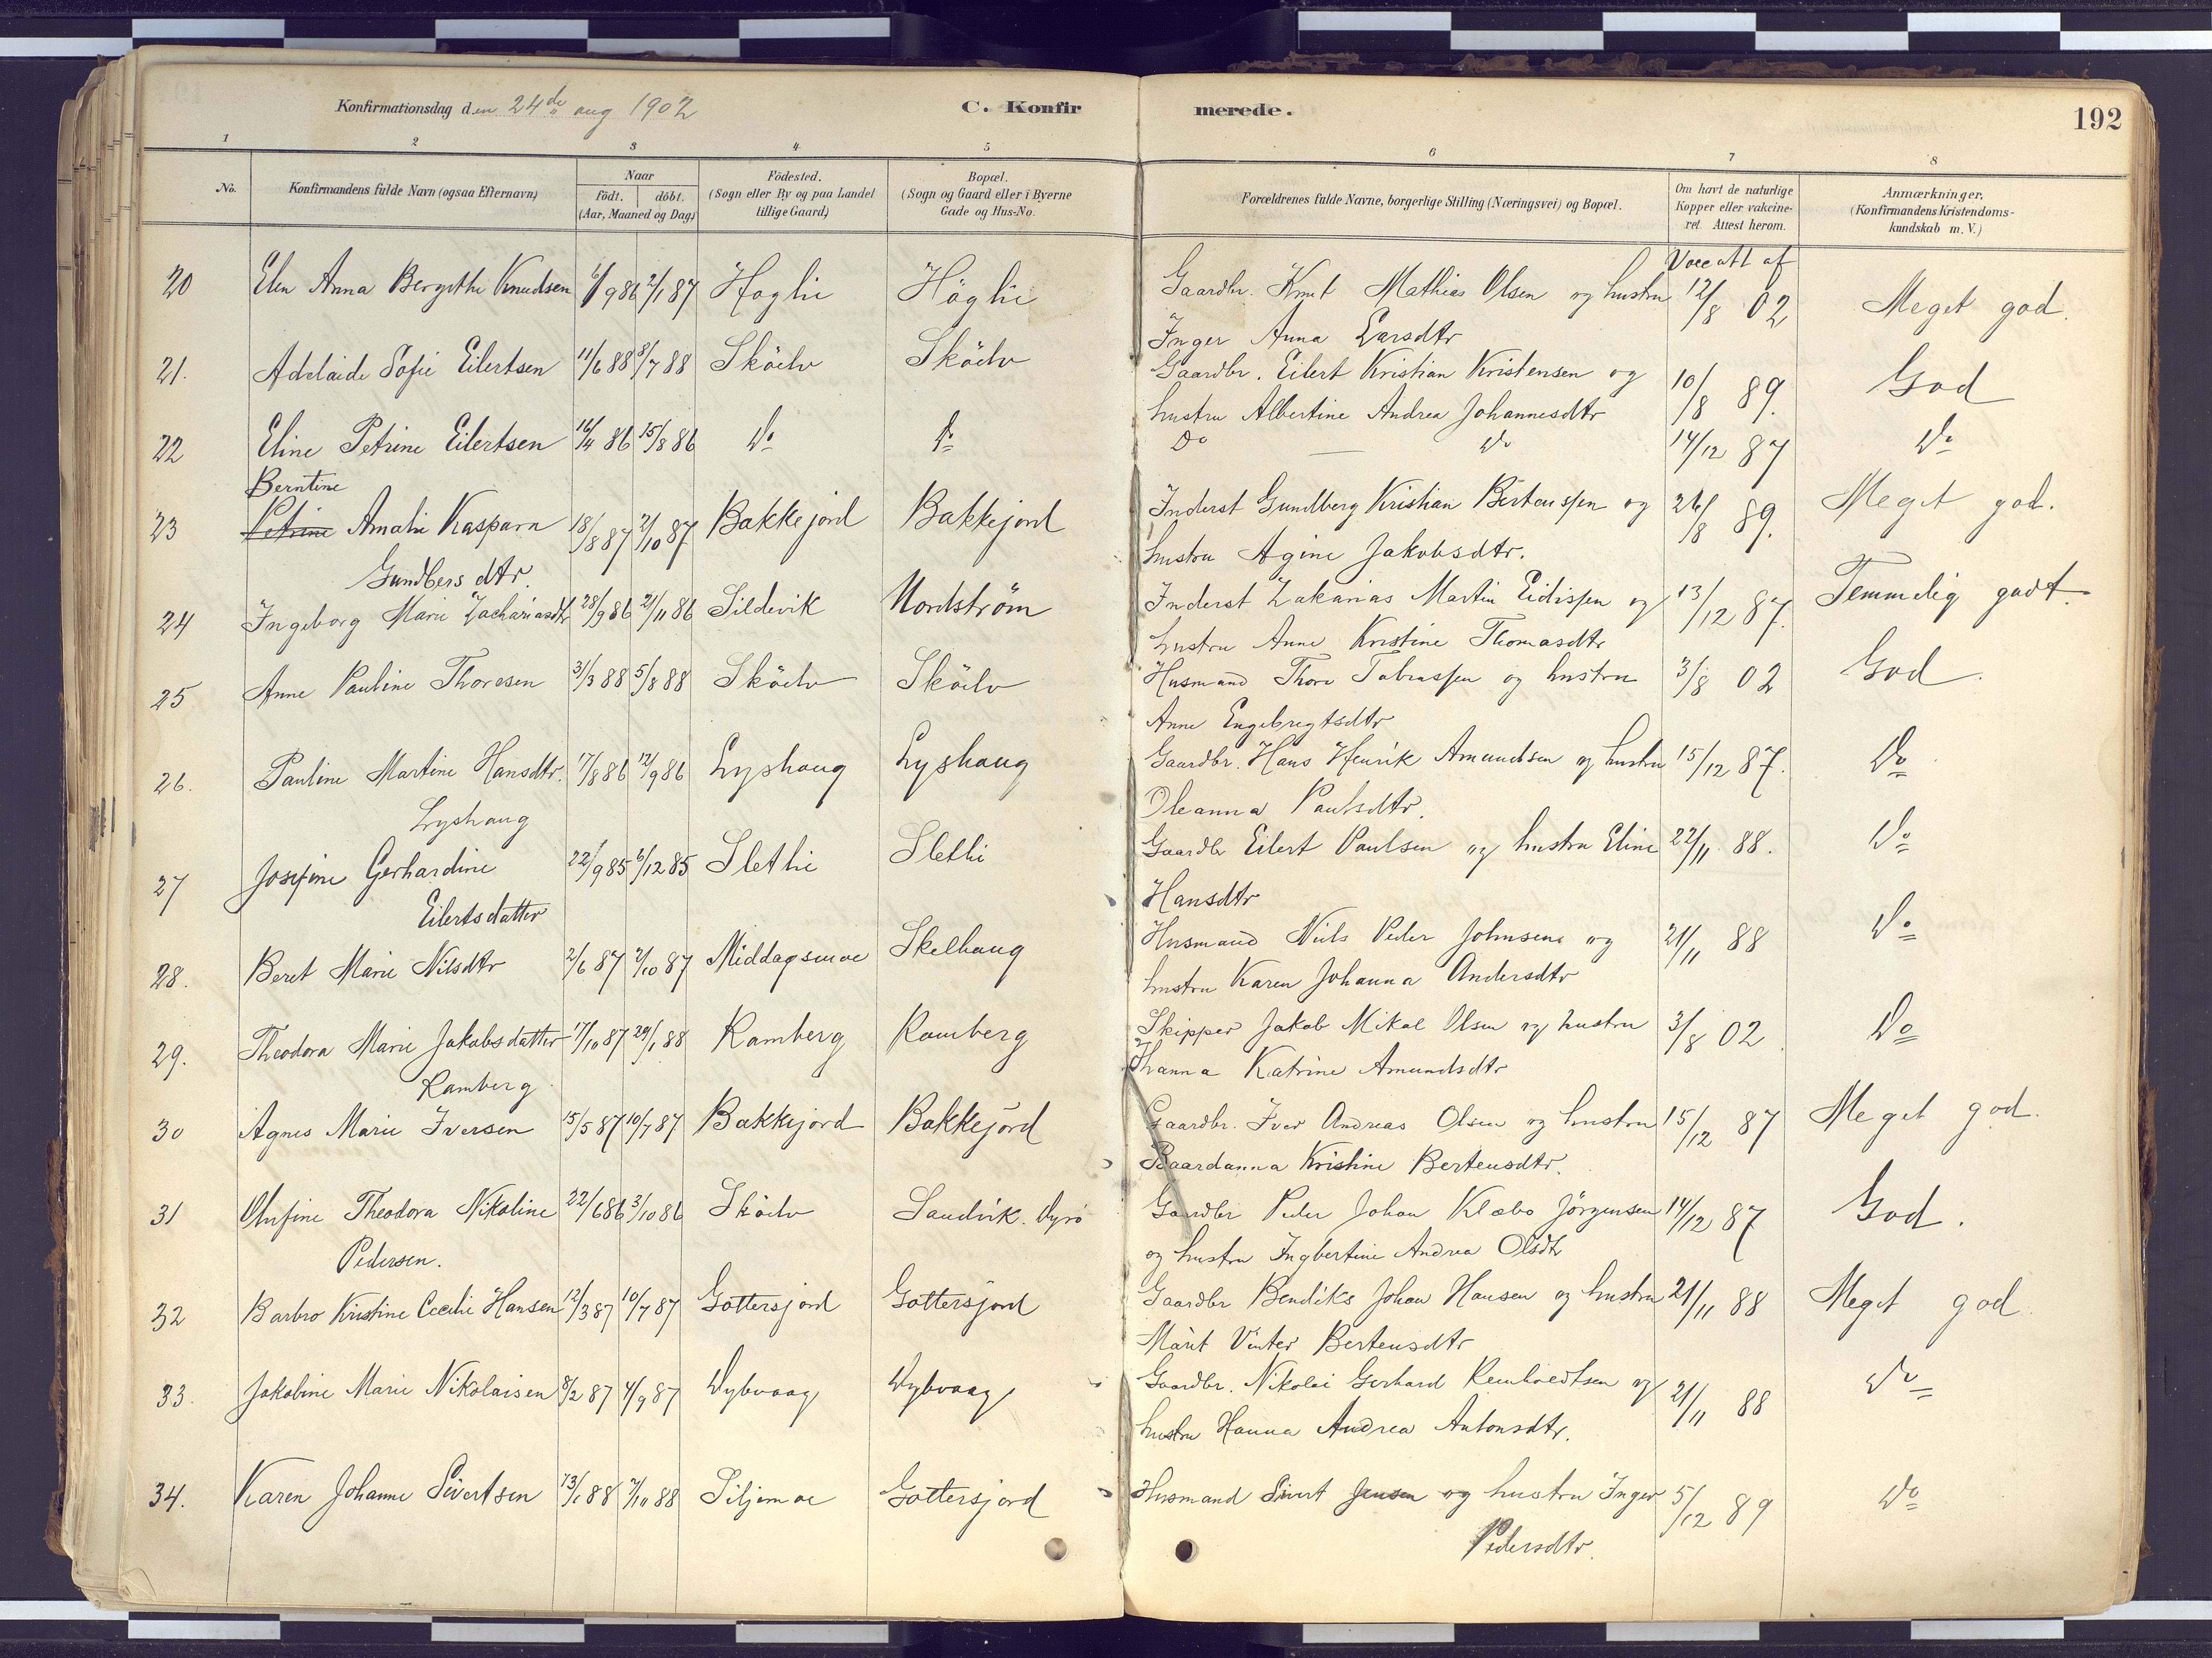 Konfirmationsdag den 24de aug 1902
C. Konfirmerede.
192
1 2 3 4 5 6 7 8
No.
Konfirmandens fulde Navn (ogsaa Efternavn)
Naar
födt. döbt.
(Aar, Maaned og Dag)
Födested.
(Sogn eller By og paa Landet
tillige Gaard)
Bopæl.
(Sogn og Gaard eller i Byerne
Gade og Hus-No.
Forældrenes fulde Navne, borgerlige Stilling (Næringsvei) og Bopæl.
Om havt de naturlige
Kopper eller vakcine-
ret. Attest herom.
Anmærkninger.
(Konfirmandens Kristendoms-
kundskab m. V.)
Vacc att af
20 Elen Anna Bergithe Knudsen 6/9 86 2/1 87 Höglie Höglie Gaardbr. Knut Mathias Olsen og hustru 12/8 02 Meget god.
Inger Anna Larsdtr
21. Adelaide Sofie Eilertsen 11/6 88 8/7 88 Sköelv Sköelv Gaardbr. Eilert Kristian Kristensen og 10/8 89. God
hustru Albertine Andrea Johannesdtr
22 Eline Petrine Eilertsen 16/4 86 15/8 86 Do Do Do Do 14/12 87 Do
Berntine
23 Petrine Amalie Kaspara 18/8 87 2/10 87 Bakkejord Bakkejord Inderst Gundberg Kristian Bertenssen og 26/8 89. Meget god.
Gundbersdtr. hustru Agine Jakobsdtr.
24 Ingeborg Marie Zachariasdtr 28/9 86 21/11 86 Sildevik Nordström Inderst Zakarias Martin Eidissen og 13/12 87. Temmelig godt.
hustru Anne Kristine Thomasdtr
25 Anne Pauline Thoresen 31/3 88 5/8 88 Sköelv Sköelv Husmand Thore Tobiassen og hustru 3/8 02 God.
Anne Engebregtsdtr
26. Pauline Martine Hansdtr. 17/8 86 12/9 86 Lyshaug Lyshaug Gaardbr. Hans Henrik Amundsen og hustru 15/12 87. Do
Lyshaug Oleanna Paulsdtr.
27 Josefine Gerhardine 22/9 85 6/12 85 Sletlie Sletli Gaardbr Eilert Paulsen og hustru Eline 22/11 88. Do
Eilertsdatter Hansdtr
28. Beret Marie Nilsdtr 2/6 87 2/10 87 Middagsmoe Skelhaug Husmand Nils Peder Johnsen og 21/11 88 Do
hustru Karen Johanna Andersdtr
29. Theodora Marie Jakobsdatter 17/10 87 29/1 88 Ramberg Ramberg Skipper Jakob Mikal Olsen og hustru 3/8 02 Do
Ramberg Hanna Katrine Amundsdtr
30 Agnes Marie Iversen 15/5 87 10/7 87 Bakkejord Bakkejord Gaardbr. Iver Andreas Olsen og hustru 15/12 87 Meget god.
Baardanna Kristine Bertensdtr.
31 Olufine Theodora Nikoline 22/6 86 3/10 86 Sköelv Sandvik. Dyrö Gaardbr Peder Johan Klæbo Jörgensen 14/12 87 God.
Pedersen. og hustru Ingbertine Andrea Olsdtr
32 Barbro Kristine Cecilie Hansen 12/3 87 10/7 87 Gottersjord Gottersjord Gaardbr Bendiks Johan Hansen og hustru 21/11 88 Meget god
Marit Vinter Bertensdtr
33. Jakobine Marie Nikolaisen 8/2 87 4/9 87 Dybvaag Dybvaag Gaardbr. Nikolai Gerhard Reinholdtsen og 21/11 88 Do
hustru Hanna Andrea Antonsdtr.
34. Karen Johanne Sivertsen 13/1 88 7/10 88 Siljemoe Gottersjord Husmand Sivert Jensen og hustru Inger 5/12 89 Do
Pedersdtr.